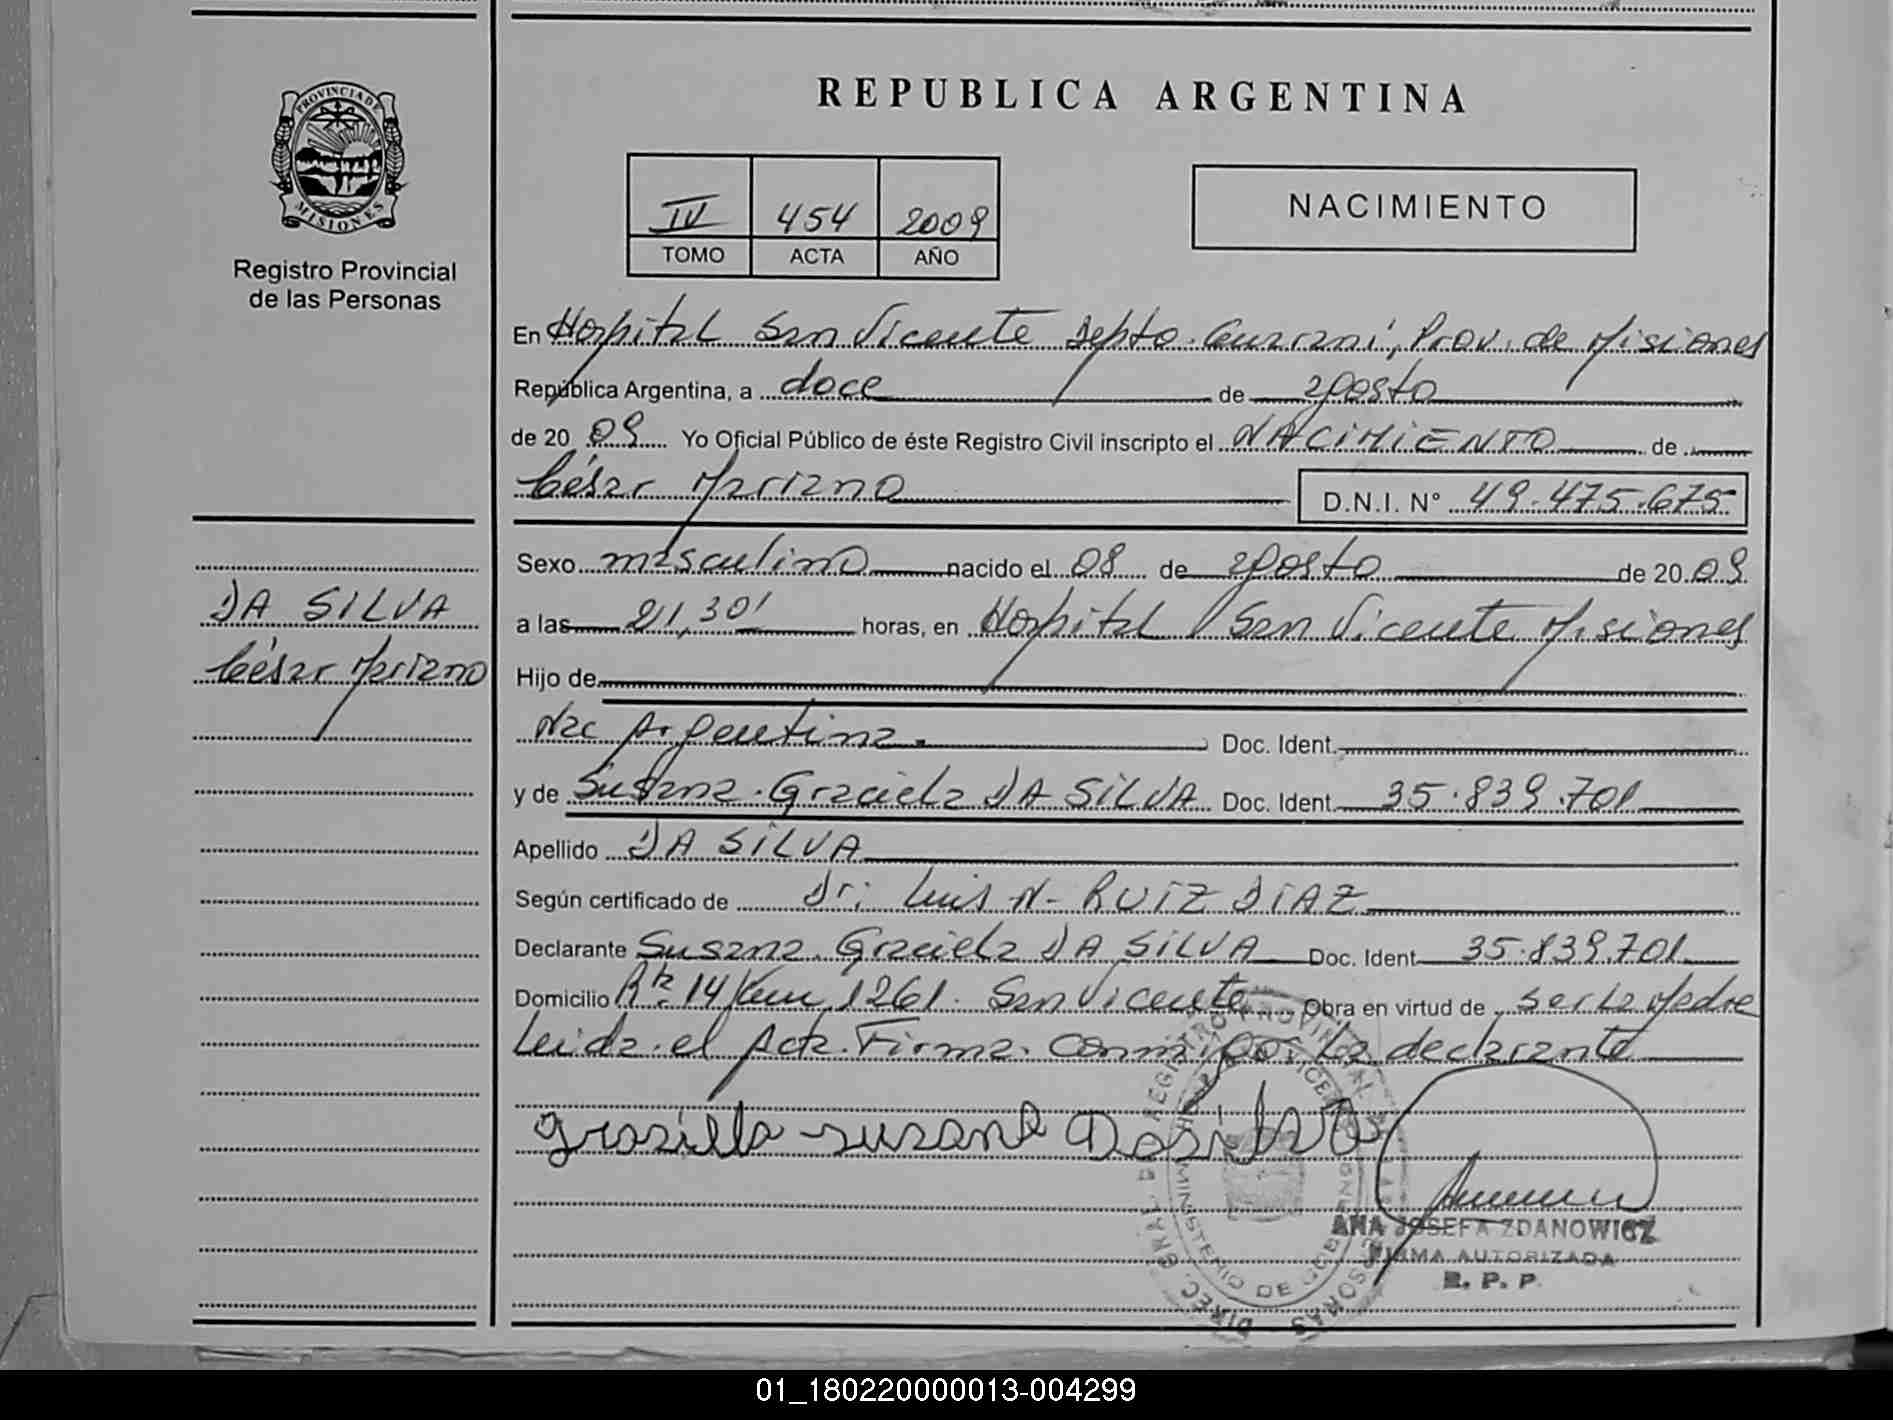 PROVINCIA DE
MISIONES
Registro Provincial
de las Personas
DA SILVA
César Mariano
REPUBLICA ARGENTINA
IV 454 2009
TOMO ACTA AÑO
NACIMIENTO
En Hospital San Vicente Depto. Guaraní, Prov. de Misiones
República Argentina, a doce de agosto
de 20 09 Yo Oficial Público de éste Registro Civil inscripto el NACIMIENTO de
César Mariano D.N.I. N° 49.475.675
Sexo masculino nacido el 08 de agosto de 20 09
a las 21,30' horas, en Hospital San Vicente Misiones
Hijo de
Nac Argentina. Doc. Ident.
y de Susana Graciela DA SILVA Doc. Ident. 35.839.701
Apellido DA SILVA
Según certificado de Dr: Luis N. RUIZ DIAZ
Declarante Susana Graciela DA SILVA Doc. Ident. 35.839.701
Domicilio Rta. 14 Km 1261. San Vicente Obra en virtud de ser la Madre
Leida el Acta. Firma conmigo la declarante
grasiella susana Dasilva
ANA JOSEFA ZDANOWICZ
FIRMA AUTORIZADA
R. P. P.
01_180220000013-004299